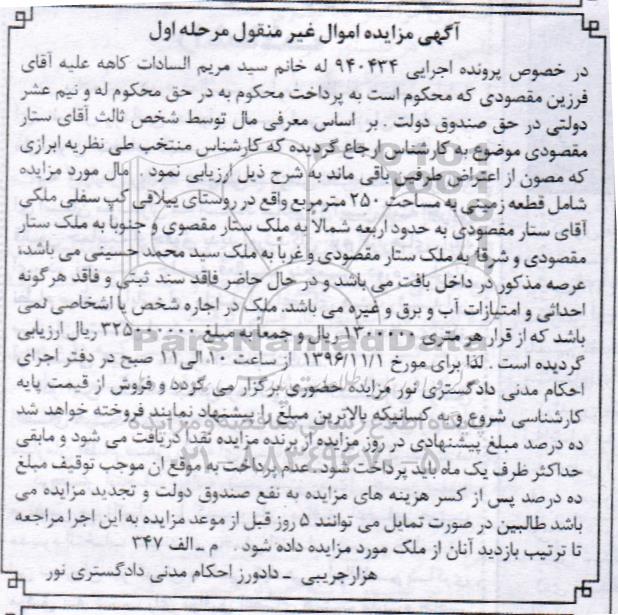 آگهی مزایده اموال غیر منقول مرحله اول
در خصوص پرونده اجرایی ۹۴۰۴۳۴ له خانم سید مریم السادات کاهه علیه آقای
فرزین مقصودی که محکوم است به پرداخت محکوم به در حق محکوم له و نیم عشر
دولتی در حق صندوق دولت . بر اساس معرفی مال توسط شخص ثالث آقای ستار
مقصودی موضوع به کارشناس ارجاع گردیده که کارشناس منتخب طی نظریه ابرازی
که مصون از اعتراض طرفین باقی ماند به شرح ذیل ارزیابی نمود . مال مورد مزایده
شامل قطعه زمینی به مساحت ۲۵۰ مترمربع واقع در روستای ییلاقی کپ سفلی ملکی
آقای ستار مقصودی به حدود اربعه شمالاً به ملک ستار مقصوی و جنوباً به ملک ستار
مقصودی و شرقاً به ملک ستار مقصودی و غرباً به ملک سید محمد حسینی می باشد،
عرصه مذکور در داخل بافت می باشد و در حال حاضر فاقد سند ثبتی و فاقد هرگونه
احداثی و امتیازات آب و برق و غیره می باشد. ملک در اجاره شخص یا اشخاصی نمی
باشد که از قرار هر متری ۱۳۰۰۰۰۰ ریال و جمعاً به مبلغ ۳۲۵۰۰۰۰۰۰ ریال ارزیابی
گردیده است . لذا برای مورخ ۱۳۹۶/۱۱/۱ از ساعت ۱۰ الی ۱۱ صبح در دفتر اجرای
احکام مدنی دادگستری نور مزایده حضوری برگزار می گردد و فروش از قیمت پایه
کارشناسی شروع و به کسانیکه بالاترین مبلغ را پیشنهاد نمایند فروخته خواهد شد
ده درصد مبلغ پیشنهادی در روز مزایده از برنده مزایده نقدا دریافت می شود و مابقی
حداکثر ظرف یک ماه باید پرداخت شود. عدم پرداخت به موقع ان موجب توقیف مبلغ
ده درصد پس از کسر هزینه های مزایده به نفع صندوق دولت و تجدید مزایده می
باشد طالبین در صورت تمایل می توانند ۵ روز قبل از موعد مزایده به این اجرا مراجعه
تا ترتیب بازدید آنان از ملک مورد مزایده داده شود . م ـ الف ۳۴۷
هزارجریبی ـ دادورز احکام مدنی دادگستری نور
ParsNamadData